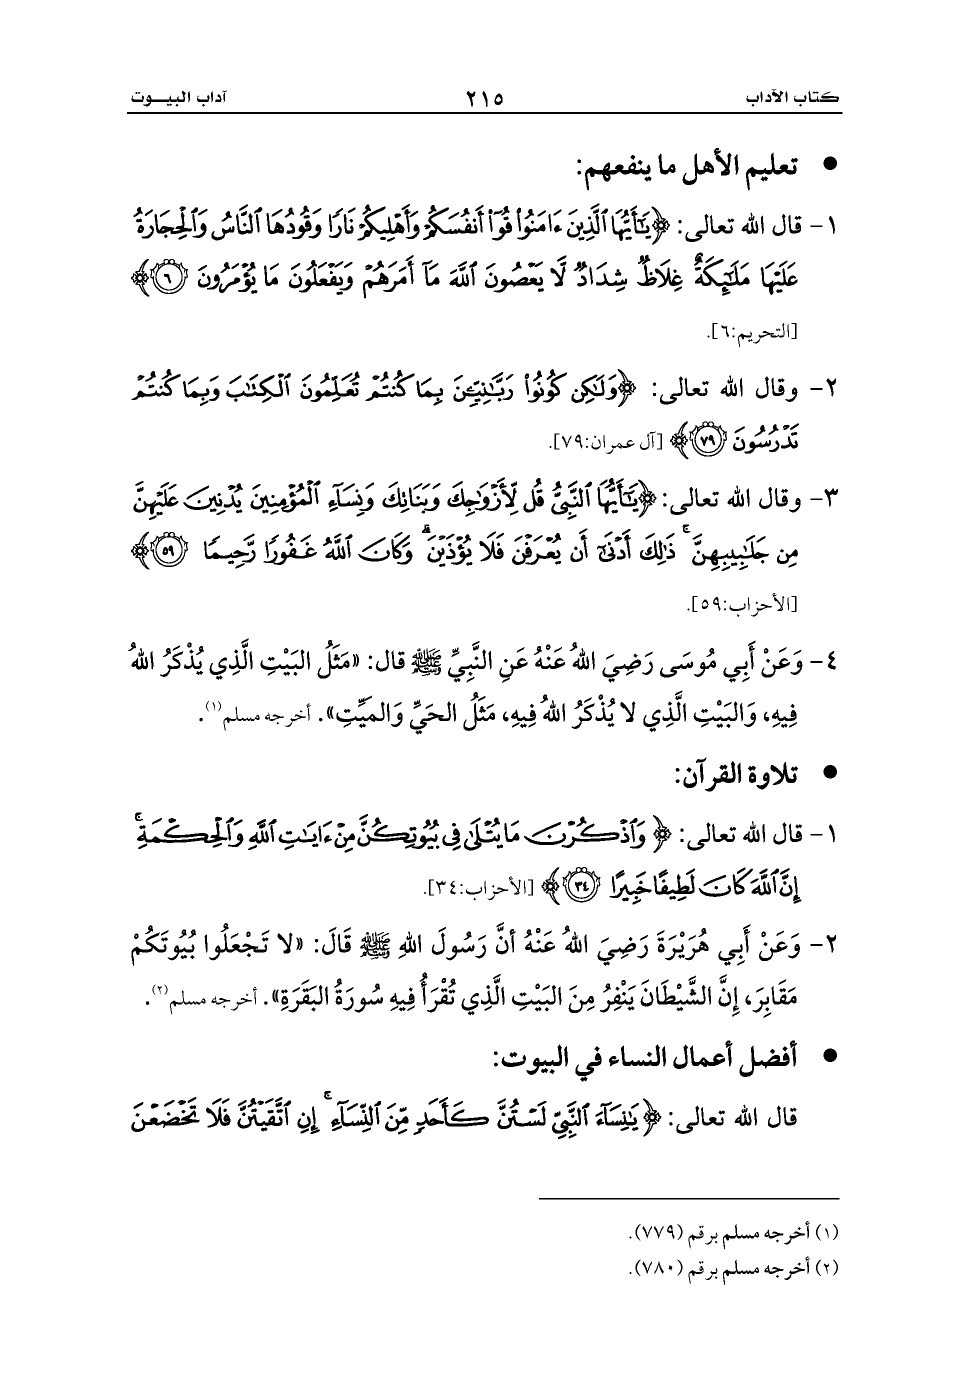 كتاب الآداب ٢١٥ آداب البيـــوت
● تعليم الأهل ما ينفعهم:
١- قال الله تعالى: ﴿يَٰٓأَيُّهَا ٱلَّذِينَ ءَامَنُوا۟ قُوٓا۟ أَنفُسَكُمْ وَأَهْلِيكُمْ نَارًا وَقُودُهَا ٱلنَّاسُ وَٱلْحِجَارَةُ
عَلَيْهَا مَلَٰٓئِكَةٌ غِلَاظٌ شِدَادٌ لَّا يَعْصُونَ ٱللَّهَ مَآ أَمَرَهُمْ وَيَفْعَلُونَ مَا يُؤْمَرُونَ ٦﴾
[التحريم:٦].
٢- وقال الله تعالى: ﴿وَلَٰكِن كُونُوا۟ رَبَّٰنِيِّۦنَ بِمَا كُنتُمْ تُعَلِّمُونَ ٱلْكِتَٰبَ وَبِمَا كُنتُمْ
تَدْرُسُونَ ٧٩﴾ [آل عمران:٧٩].
٣- وقال الله تعالى: ﴿يَٰٓأَيُّهَا ٱلنَّبِىُّ قُل لِّأَزْوَٰجِكَ وَبَنَاتِكَ وَنِسَآءِ ٱلْمُؤْمِنِينَ يُدْنِينَ عَلَيْهِنَّ
مِن جَلَٰبِيبِهِنَّ ۚ ذَٰلِكَ أَدْنَىٰٓ أَن يُعْرَفْنَ فَلَا يُؤْذَيْنَ ۗ وَكَانَ ٱللَّهُ غَفُورًا رَّحِيمًا ٥٩﴾
[الأحزاب:٥٩].
٤- وَعَنْ أَبِي مُوسَى رَضِيَ اللهُ عَنْهُ عَنِ النَّبِيِّ ﷺ قال: «مَثَلُ البَيْتِ الَّذِي يُذْكَرُ اللهُ
فِيهِ، وَالبَيْتِ الَّذِي لا يُذْكَرُ اللهُ فِيهِ، مَثَلُ الحَيِّ وَالميِّتِ». أخرجه مسلم(١).
● تلاوة القرآن:
١- قال الله تعالى: ﴿وَٱذْكُرْنَ مَا يُتْلَىٰ فِى بُيُوتِكُنَّ مِنْ ءَايَٰتِ ٱللَّهِ وَٱلْحِكْمَةِ ۚ
إِنَّ ٱللَّهَ كَانَ لَطِيفًا خَبِيرًا ٣٤﴾ [الأحزاب:٣٤].
٢- وَعَنْ أَبِي هُرَيْرَةَ رَضِيَ اللهُ عَنْهُ أنَّ رَسُولَ اللهِ ﷺ قَالَ: «لا تَجْعَلُوا بُيُوتَكُمْ
مَقَابِرَ، إِنَّ الشَّيْطَانَ يَنْفِرُ مِنَ البَيْتِ الَّذِي تُقْرَأُ فِيهِ سُورَةُ البَقَرَةِ». أخرجه مسلم(٢).
● أفضل أعمال النساء في البيوت:
قال الله تعالى: ﴿يَٰنِسَآءَ ٱلنَّبِىِّ لَسْتُنَّ كَأَحَدٍ مِّنَ ٱلنِّسَآءِ ۚ إِنِ ٱتَّقَيْتُنَّ فَلَا تَخْضَعْنَ
(١) أخرجه مسلم برقم (٧٧٩).
(٢) أخرجه مسلم برقم (٧٨٠).